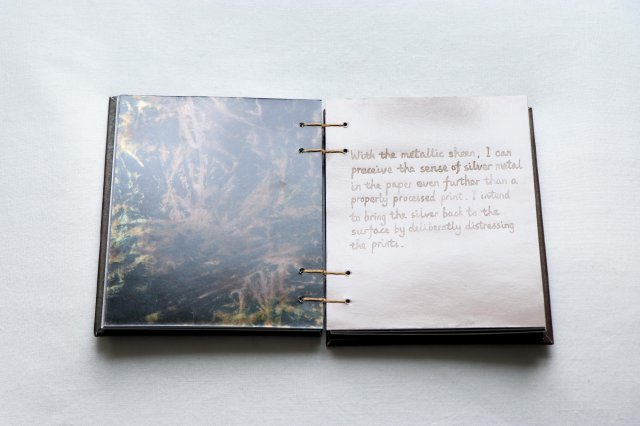 With the metallic sheen, I can
preceive the sense of silver metal
in the paper even further than a
properly processed print. I intend
to bring the silver back to the
surface by deliberatly distressing
the prints.